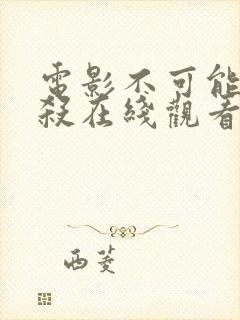 電影不可能
殺在綫觀看
西菱